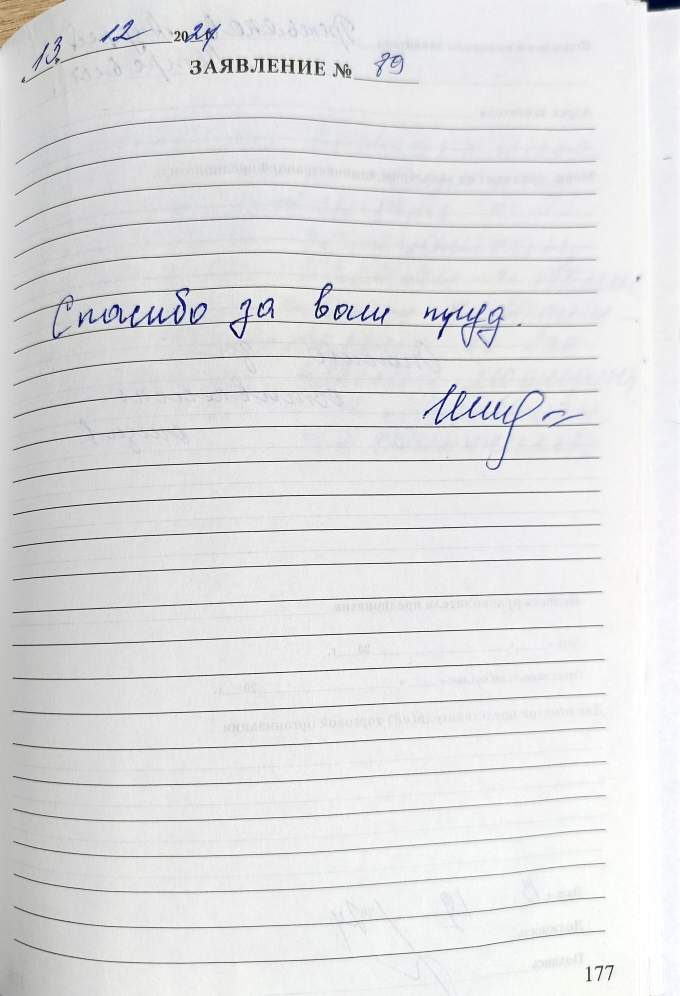 13. 12 2024
ЗАЯВЛЕНИЕ № 89
Спасибо за ваш труд.
177